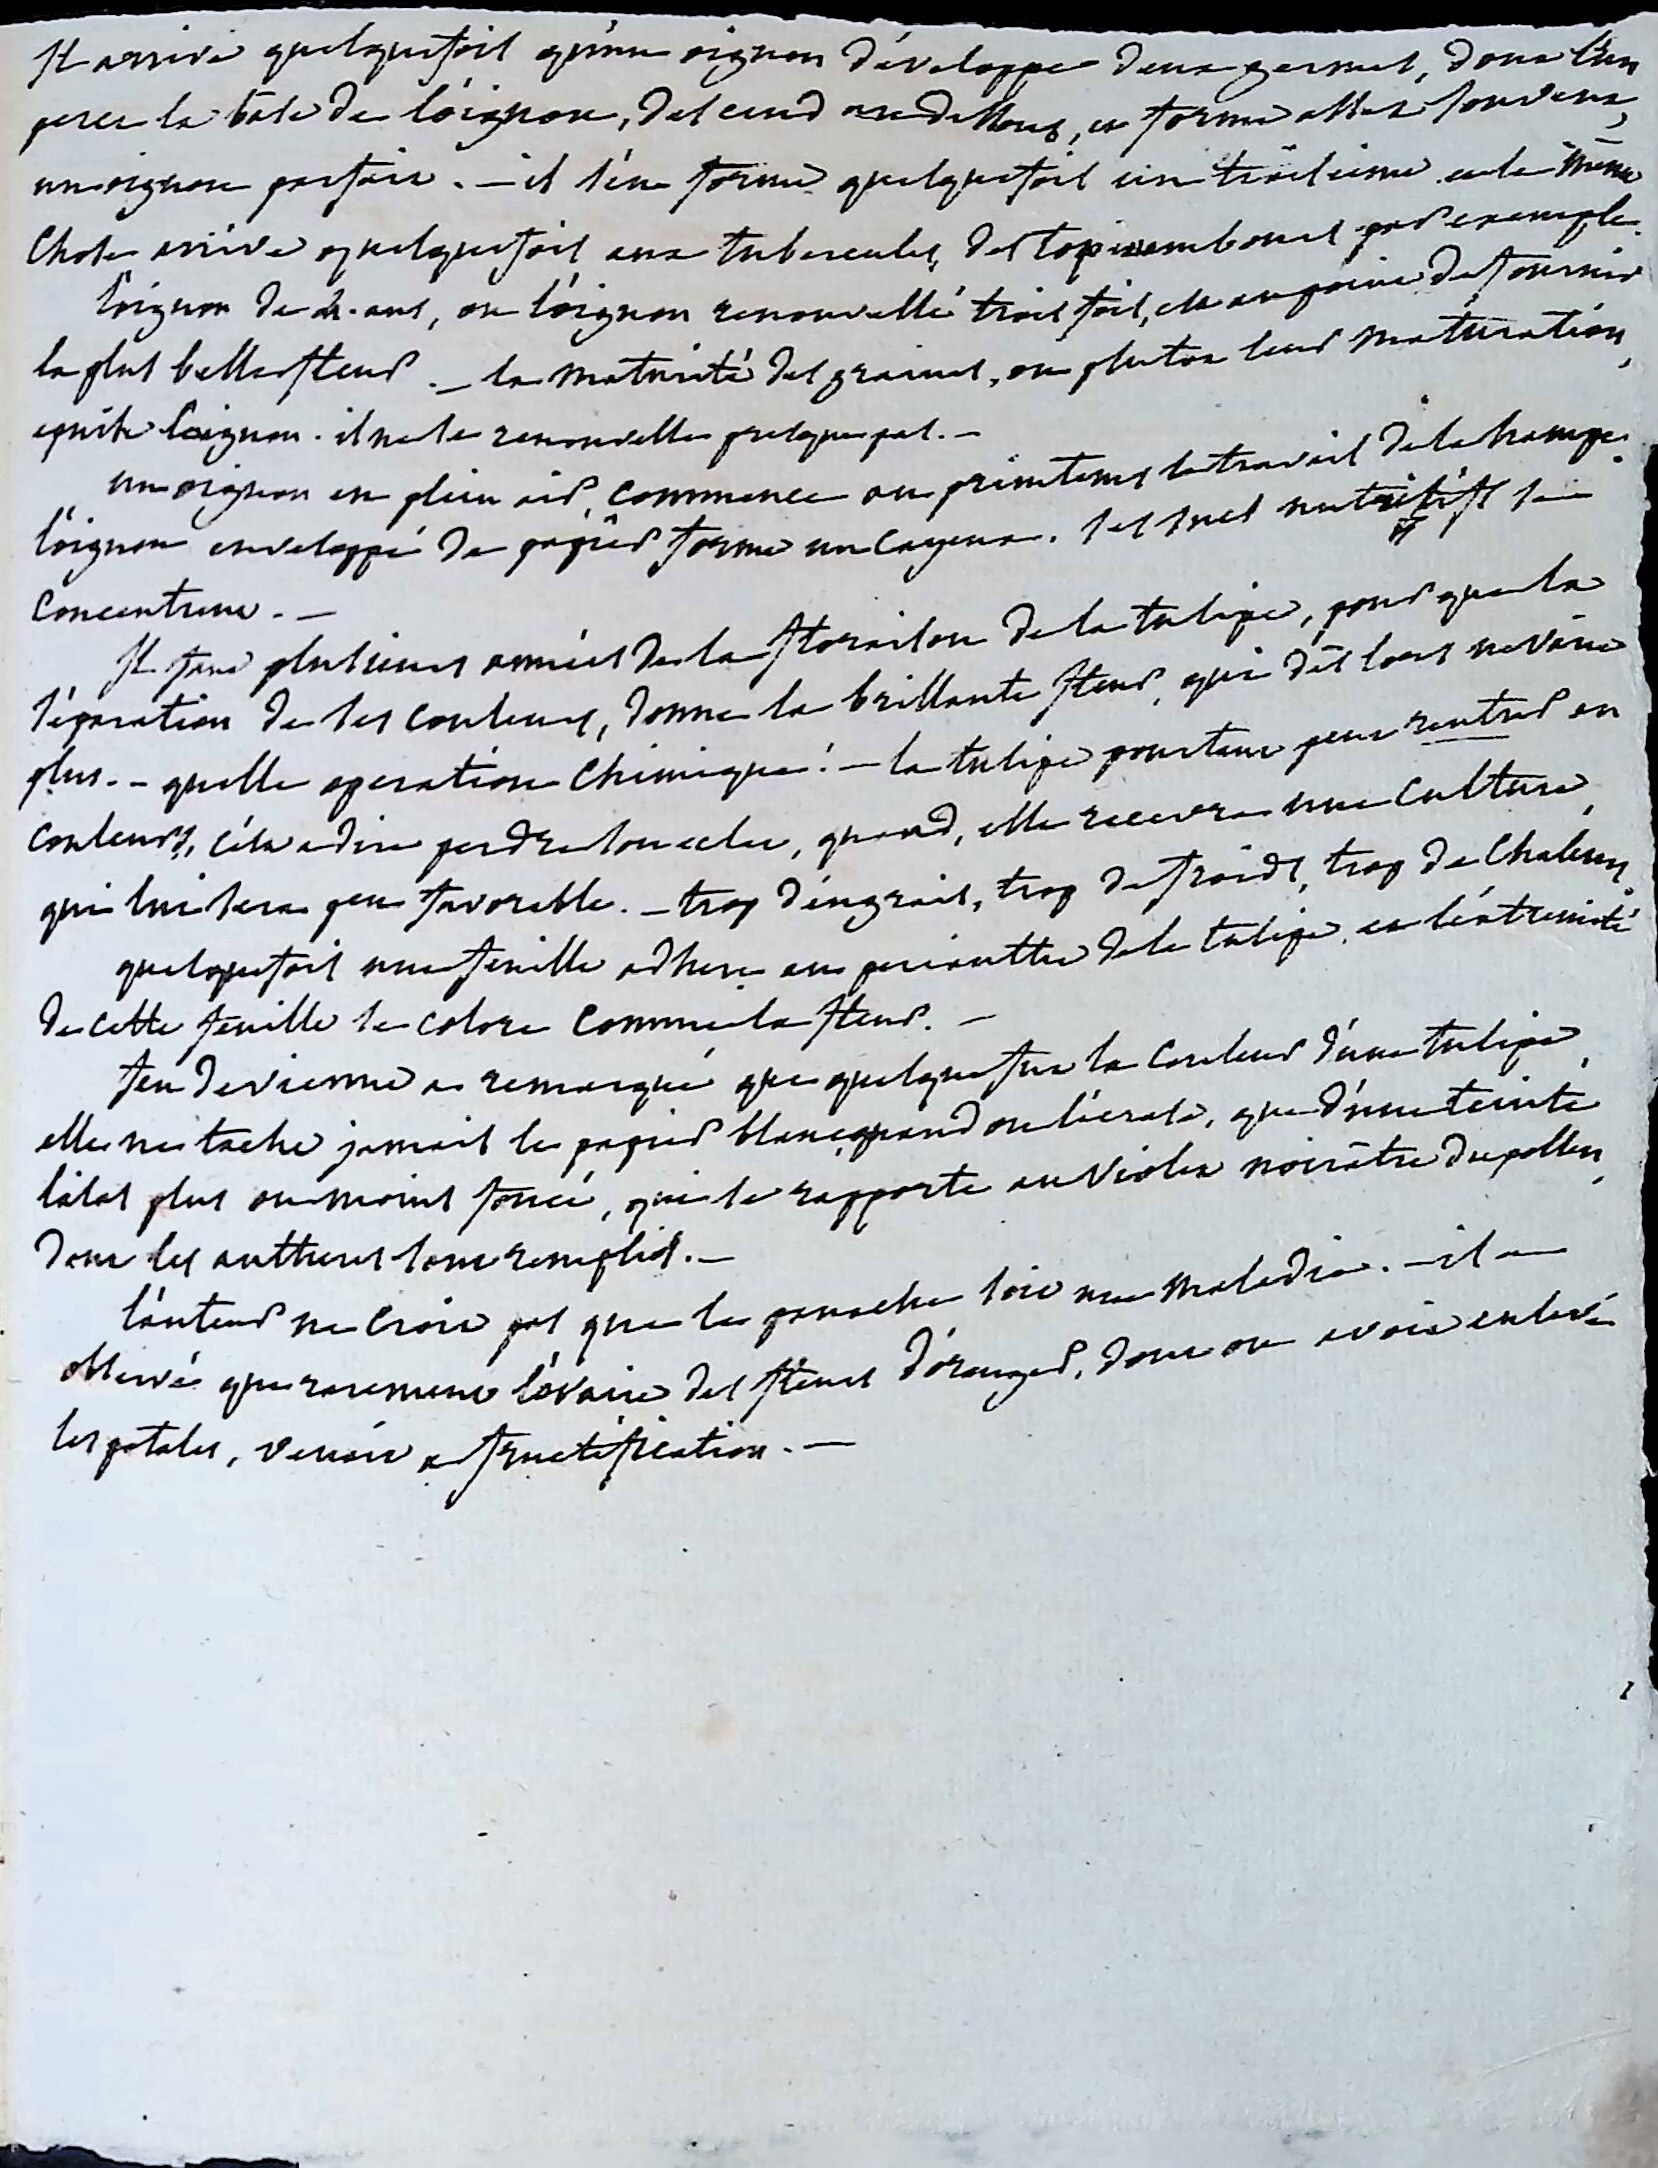 Il arrive quelquefois qu'un oignon développe deux germes, dont l'un
perce la base de l'oignon, descend au dessous, et forme assez souvent,
un oignon parfait. — il s'en forme quelquefois un troisieme. et la même
chose arrive quelquefois aux tubercules, des topinambours par exemple.
l'oignon de 4. ans, ou l'oignon renouvellé trois fois, est au point de fournir
la plus belle fleur. — la maturité des graines, ou plutot leur maturation,
epuise l'oignon. il ne se renouvelle presque pas. —
un oignon en plein air, commence au printems le travail de la hampe.
l'oignon enveloppé de papier forme un cayeux. ses sucs nutritifs se
concentrent. —
Il faut plusieurs années de la floraison de la tulipe, pour que la
séparation de ses couleurs, donne la brillante fleur, qui dès lors ne varie
plus. — quelle operation chimique! — la tulipe pourtant peut rentrer en
couleurs, c'est a dire perdre son eclat, quand, elle recevra une culture,
qui lui sera peu favorable. — trop d'engrais, trop de froids, trop de chaleur,
quelquefois une feuille adhere au perianthe de la tulipe, et l'extremité
de cette feuille se colore comme la fleur. —
feu devienne a remarqué que quelque fut la couleur d'une tulipe,
elle ne tache jamais le papier blanc, quand on l'écrase, que d'une teinte
lilas plus ou moins foncé, qui se rapporte au violet noirâtre du pollen,
dont les antheres sont remplies. —
l'auteur ne croit pas que le panache soit une maladie. — il a
observé que rarement l'ovaire des fleurs d'oranger, dont on avoit enlevé
les petales, venoit a fructification. —